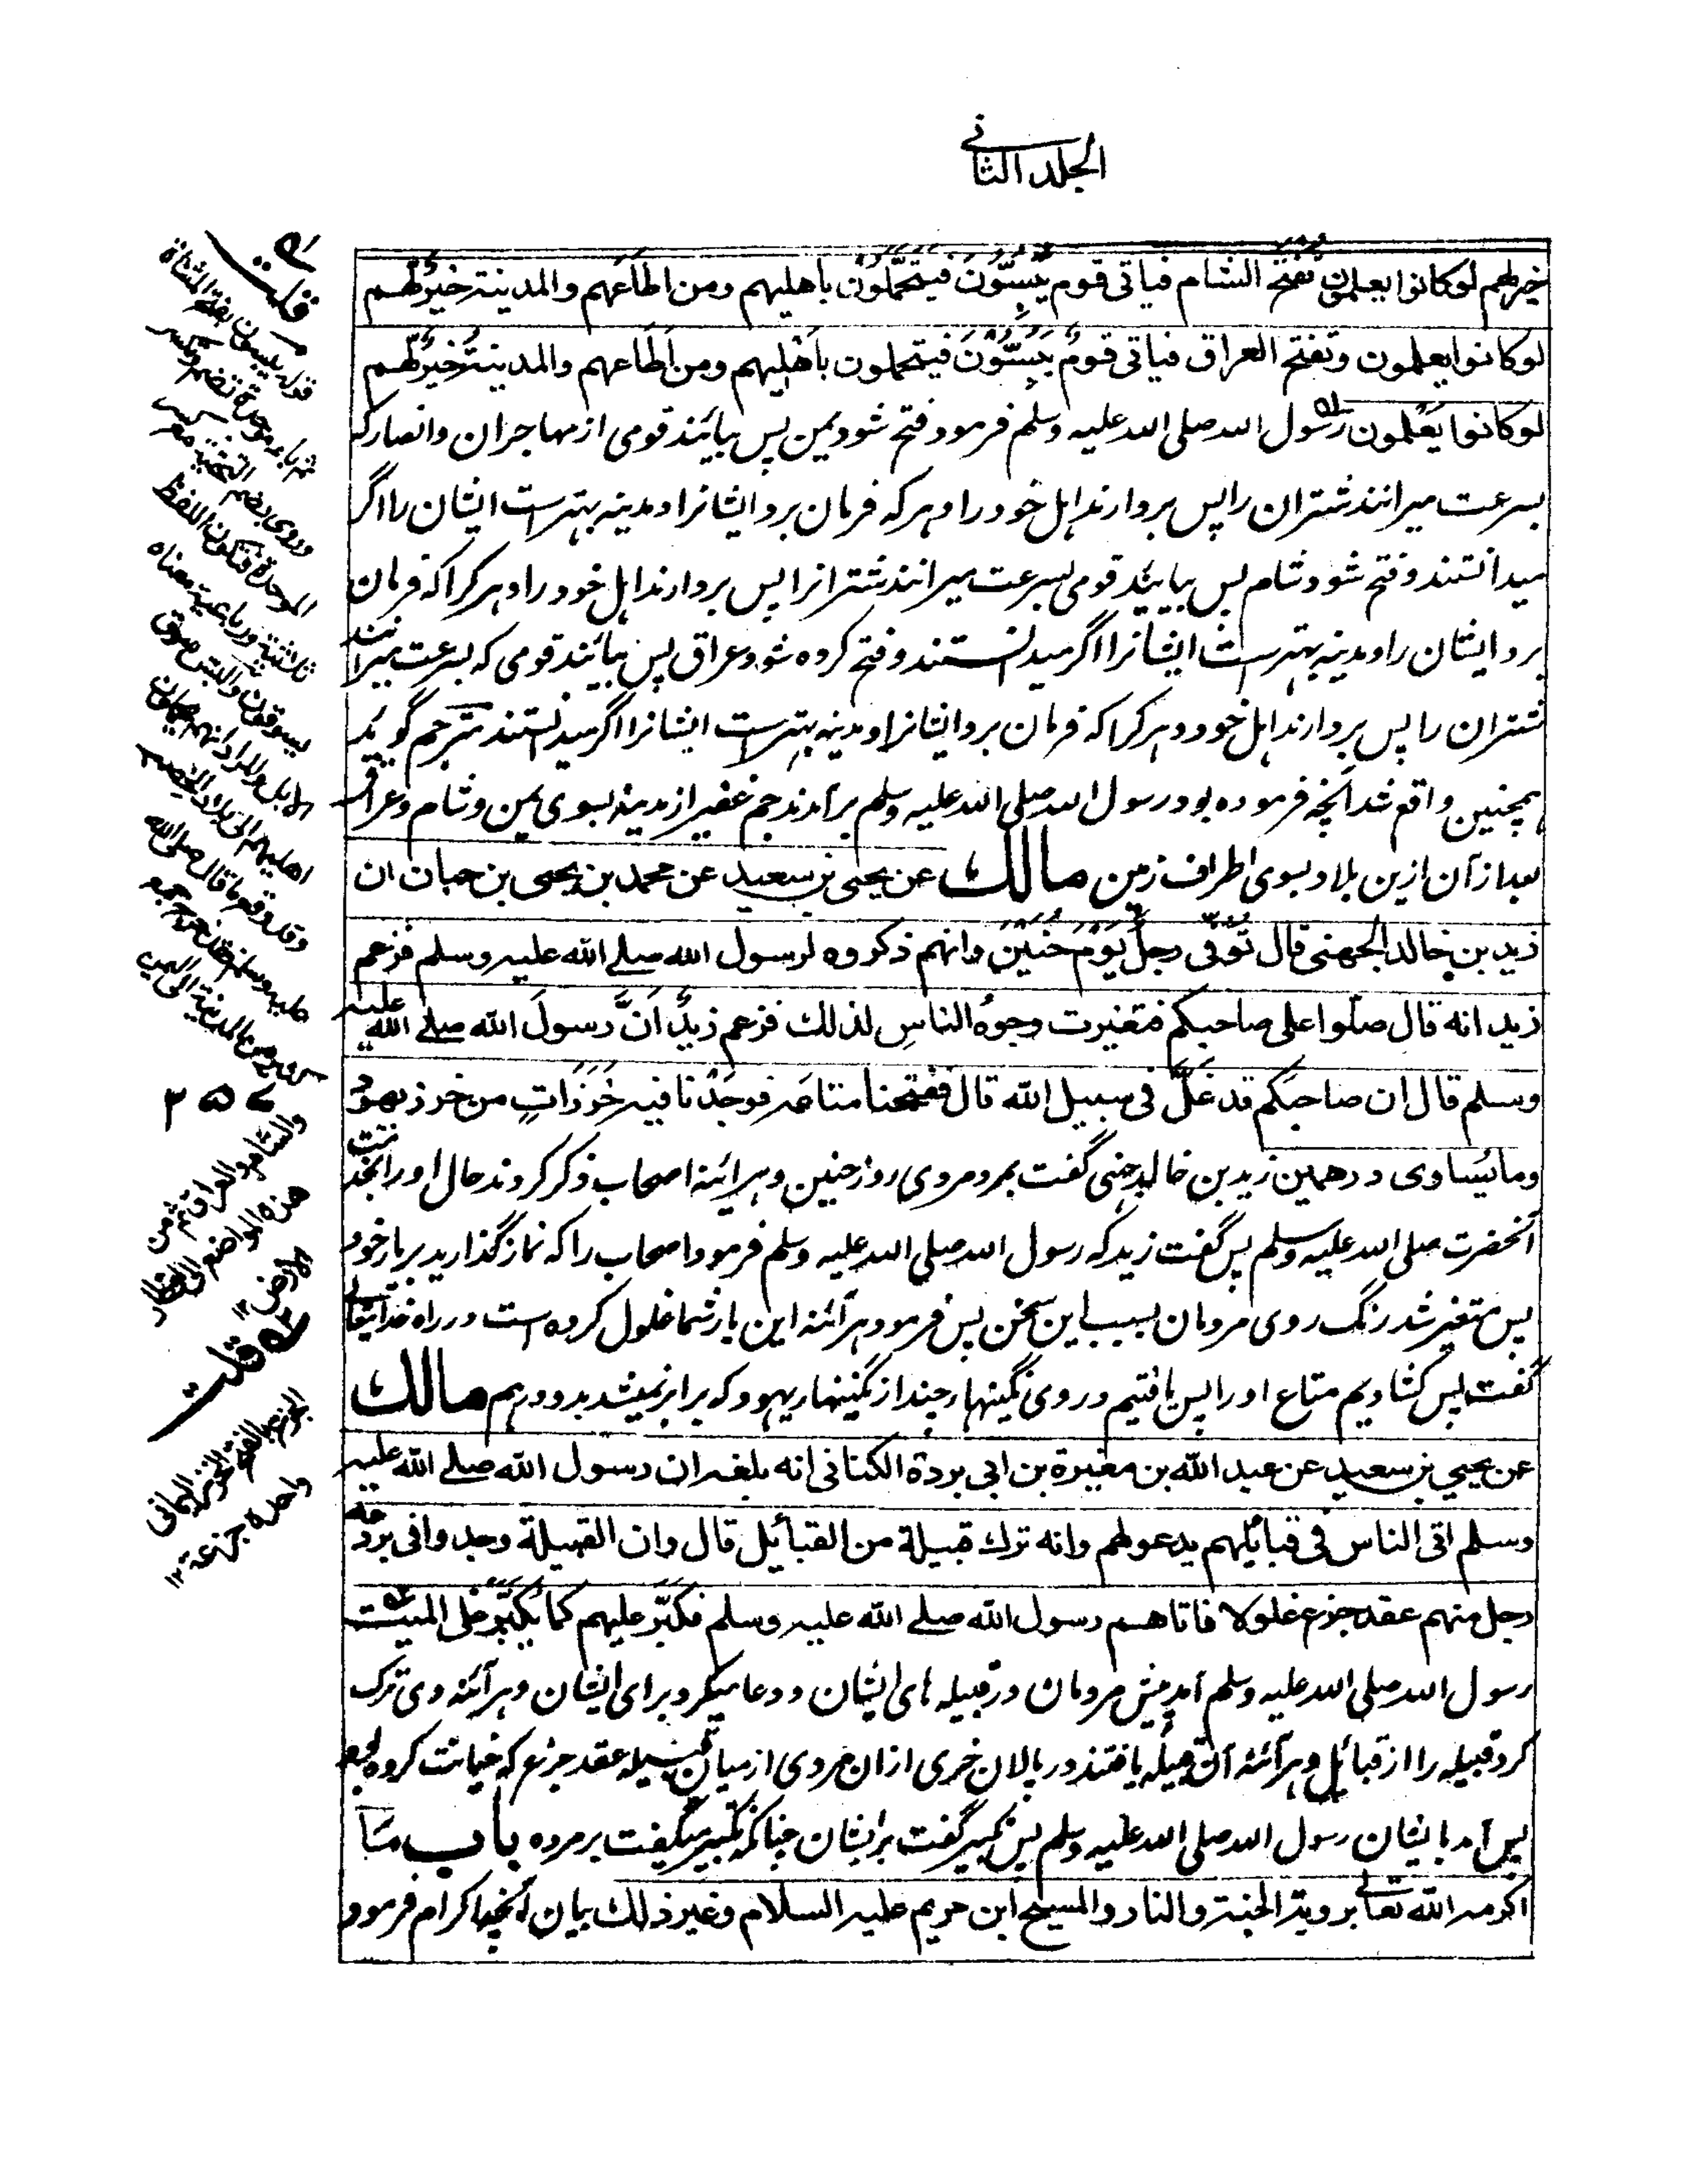 الجلد الثانی
خیرلهم لوکانوا یعلمون تفتح الشام فیاتی قوم یَبُسُّوْنَ فیَتَحَمَّلُوْن باهلیهم ومن اطاعهم والمدینة خیرٌ لهم
لوکانوا یعلمون وتفتح العراق فیاتی قومٌ یَبُسُّوْنَ فیتحملون باَهْلِیهم ومن اَطَاعهم والمدینةُ خیرٌ لهم
لوکانوا یَعْلمون رسول الله صلی الله علیه وسلم فرمود فتح شود یمن پس بیائند قومی از مهاجران وانصار که
بسرعت میرانند شتران را پس بردارند اهل خود را و هر که فرمان برد ایشانرا و مدینه بهترست ایشان را اگر
میدانستند و فتح شود شام پس بیایند قومی بسرعت میرانند شترانرا پس بردارند اهل خود را و هر کرا که فرمان
برد ایشان را و مدینه بهترست ایشانرا اگر میدانستند و فتح کرده شود عراق پس بیائند قومی که بسرعت میرانند
شتران را پس بردارند اهل خود و هر کرا که فرمان برد ایشانرا و مدینه بهترست ایشانرا اگر میدانستند مترجم گوید
همچنین واقع شد آنچه فرموده بود رسول الله صلی الله علیه وسلم برآمدند جم غفیر از مدینه بسوی یمن و شام و عراق
بعد از آن ازین بلاد بسوی اطراف زمین مالك عن یحیی بن سعید عن محمد بن یحیی بن حبان ان
زید بن خالد الجهنی قال تُوُفّی رجلٌ یَوْمَ حُنَیْنٍ وانهم ذکروه لرسول الله صلے الله علیه وسلم فزعم
زید انه قال صلّوا علی صاحبکم فتغیرت وجوهُ الناسِ لذلك فزعم زیدٌ اَنَّ رسولَ الله صلے الله علیه
وسلم قال ان صاحبَکم قد غَلَّ فی سبیل الله قال ففتحنا متاعه فوجَدْنا فیه خَرَزَاتٍ من خرز یهود
وما تُساوی درهمین زید بن خالد جهنی گفت بمرد مردی روز حنین و هر آئنه اصحاب ذکر کردند حال او را بخدمت
آنحضرت صلی الله علیه وسلم پس گفت زید که رسول الله صلی الله علیه وسلم فرمود اصحاب را که نماز گذارید بر یار خود
پس متغیر شد رنگ روی مردمان بسبب این سخن پس فرمود هر آئنه این یار شما غلول کرده است در راه خدایتعالی
گفت پس کشادیم متاع او را پس یافتیم در وی نگینها رچند از نگینهار یهود که برابر نمیشد بدو درهم مالك
عن یحیی بن سعید عن عبد الله بن مغیرة بن ابی بردة الکنانی انه بلغه ان رسول الله صلے الله علیه
وسلم اتی الناس فی قبائلهم یدعو لهم وانه ترك قبیلة من القبائیل قال وان القبیلة وجدوا فی بردعة
رجل منهم عقد جزع غلولا فاتاهم رسول الله صلے الله علیه وسلم فکبّر علیهم کما یُکَبَّرُ علی المیت
رسول الله صلی الله علیه وسلم آمد پیش مردمان در قبیله های ایشان و دعا میکرد برای ایشان و هر آئنه وی ترک
کرد قبیله را از قبائل و هر آئنه آن قبیله یافتند در پالان خری ازان مردی از میان قبیله عقد جزع که خیانت کرده
پس آمد بایشان رسول الله صلی الله علیه وسلم پس تکبیر گفت بر ایشان چنانکه تکبیر میگفت بر مرده باب ما
اکرمه الله تعالی برویة الجنة والنار والمسیح ابن مریم علیه السلام وغیر ذلك بیان آنچه اکرام فرمود
قلت
قوله یبسون بفتح المثناة
ثم باء موحدة تضم وتکسر
وروی بضم التحتیة مع کسر
الموحدة فتکون اللفظ
ثلاثیة ورباعیة معناه
یسوقون والبس سوق
الابل والمراد انهم
اهلیهم الی بلاد الخصب
وقد وقع ما قال صلی الله
علیه وسلم
من المدینة الی الیمن
والشام والعراق ثم من
هذه المواضع الی اقطار
الارض ۱۲
قلت
الجزع بالفتح الخرز الیمانی
واحده جزعة ۱۲